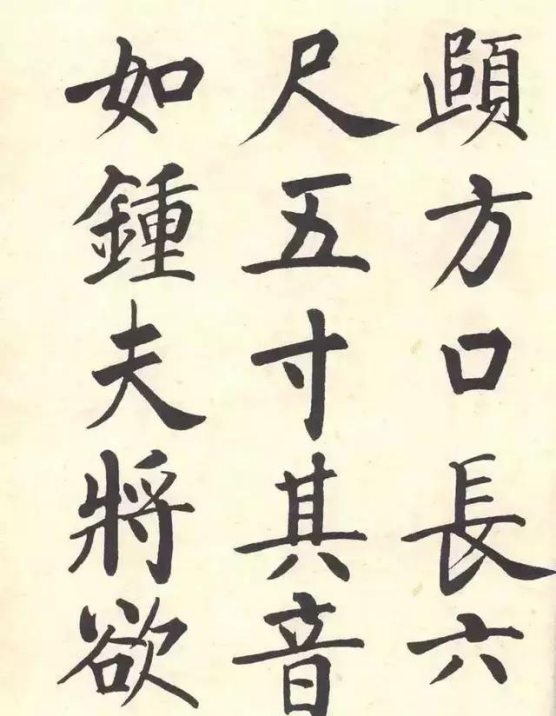 頥方口長六
尺五寸其音
如鍾夫將欲